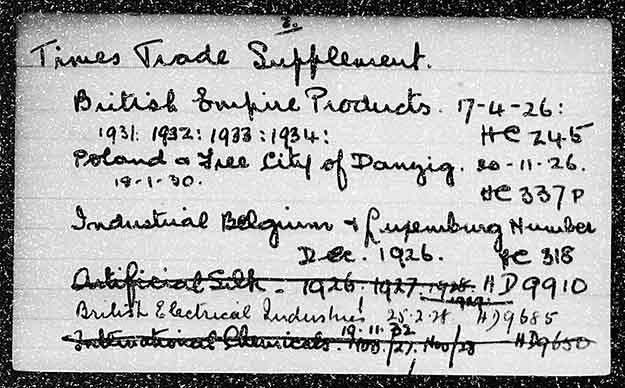 2.
Times Trade Supplement.
British Empire Products. 17-4-26:
1931: 1932: 1933: 1934: HC 245
Poland & Free City of Danzig. 20-11-26.
18-1-30. HC 337P
Industrial Belgium & Luxemburg Number
Dec. 1926. HC 318
Artificial Silk. 1926. 1927. 1928. HD9910
1929.
British Electrical Industries 25.2.28. HD9685
19.11.32
International Chemicals. Nov/27. Nov/28 HD9650